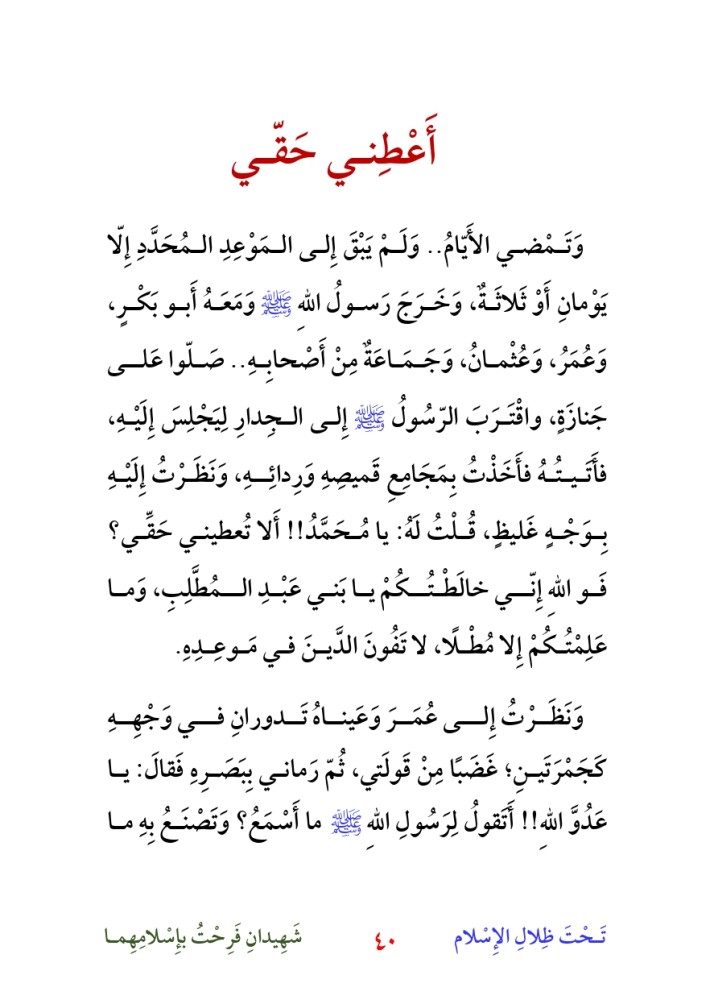 أَعْطِنـي حَقّـي
وَتَـمْضـي الأَيّامُ.. وَلَـمْ يَبْقَ إِلـى الـمَوْعِدِ الـمُحَدَّدِ إِلّا
يَوْمانِ أَوْ ثَلاثَـةٌ، وَخَـرَجَ رَسـولُ اللهِ ﷺ وَمَعَـهُ أَبـو بَكْـرٍ،
وَعُمَرُ، وَعُثْمـانُ، وَجَـمَـاعَةٌ مِنْ أَصْحابِـهِ.. صَـلّوا عَلــى
جَنازَةٍ، واقْتَـرَبَ الرّسُولُ ﷺ إِلـى الـجِدارِ لِيَجْلِسَ إِلَيْـهِ،
فأَتَـيـتُـهُ فأَخَذْتُ بِمَجَامِعِ قَميصِهِ وَرِدائِــهِ، وَنَظَـرْتُ إِلَيْـهِ
بِـوَجْـهٍ غَليظٍ، قُـلْتُ لَهُ: يا مُـحَمَّدُ!! أَلا تُعطيني حَقِّـي؟
فَـو اللهِ إِنّــي خالَطْـتُــكُمْ يــا بَنـي عَبْـدِ الــمُطَّلِبِ، وَمـا
عَلِمْتُـكُمْ إِلا مُطْـلًا، لا تَفُونَ الدَّيـنَ فـي مَـوعِـدِهِ.
وَنَظَــرْتُ إِلــــى عُمَـرَ وَعَينـــاهُ تَــدورانِ فــــي وَجْهِــهِ
كَجَمْرَتَـينِ؛ غَضَبًا مِنْ قَولَتي، ثُمّ رَمانـي بِبَصَـرِهِ فَقالَ: يـا
عَدُوَّ اللهِ!! أَتَقولُ لِرَسُولِ اللهِ ﷺ ما أَسْمَعُ؟ وَتَصْنَـعُ بِهِ مـا
تَـحْتَ ظِلالِ الإِسْلام ٤٠ شَهِيدانِ فَرِحْتُ بِإِسْلامِهِمـا